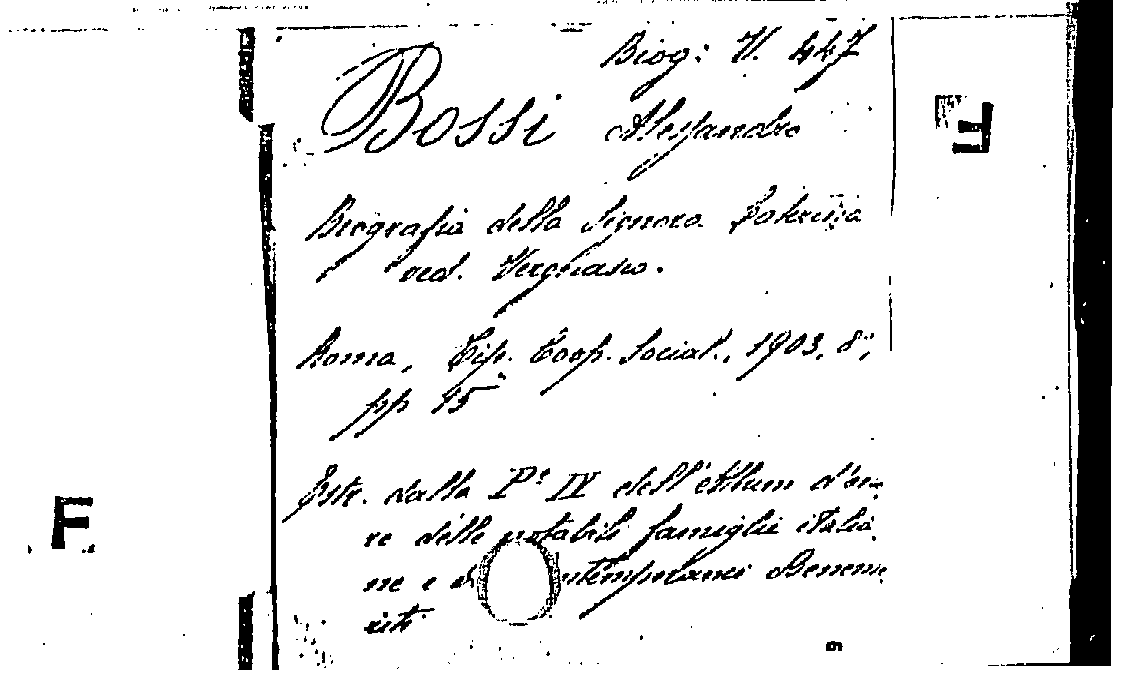 Biog: V. 447
Bossi Alessandro
Biografia della Signora Caterina
ved. Vergnasco.
Roma, Tip. Coop. Social., 1903, 8°,
pp 15
Estr. dalla P.e IV dell'Album d'ono
re delle notabili famiglie italia
ne e d ntemporanei Beneme
riti
F
F